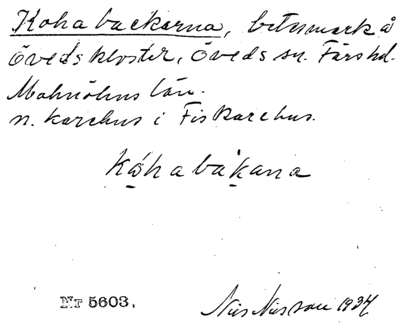 Kohabackarna, betesmark å
Övedskloster, Öveds sn. Färs hd.
Malmöhus län.
n. karehus i Fiskarehus.
kóhabákana
Nr 5603. Nils Nilsson 1934